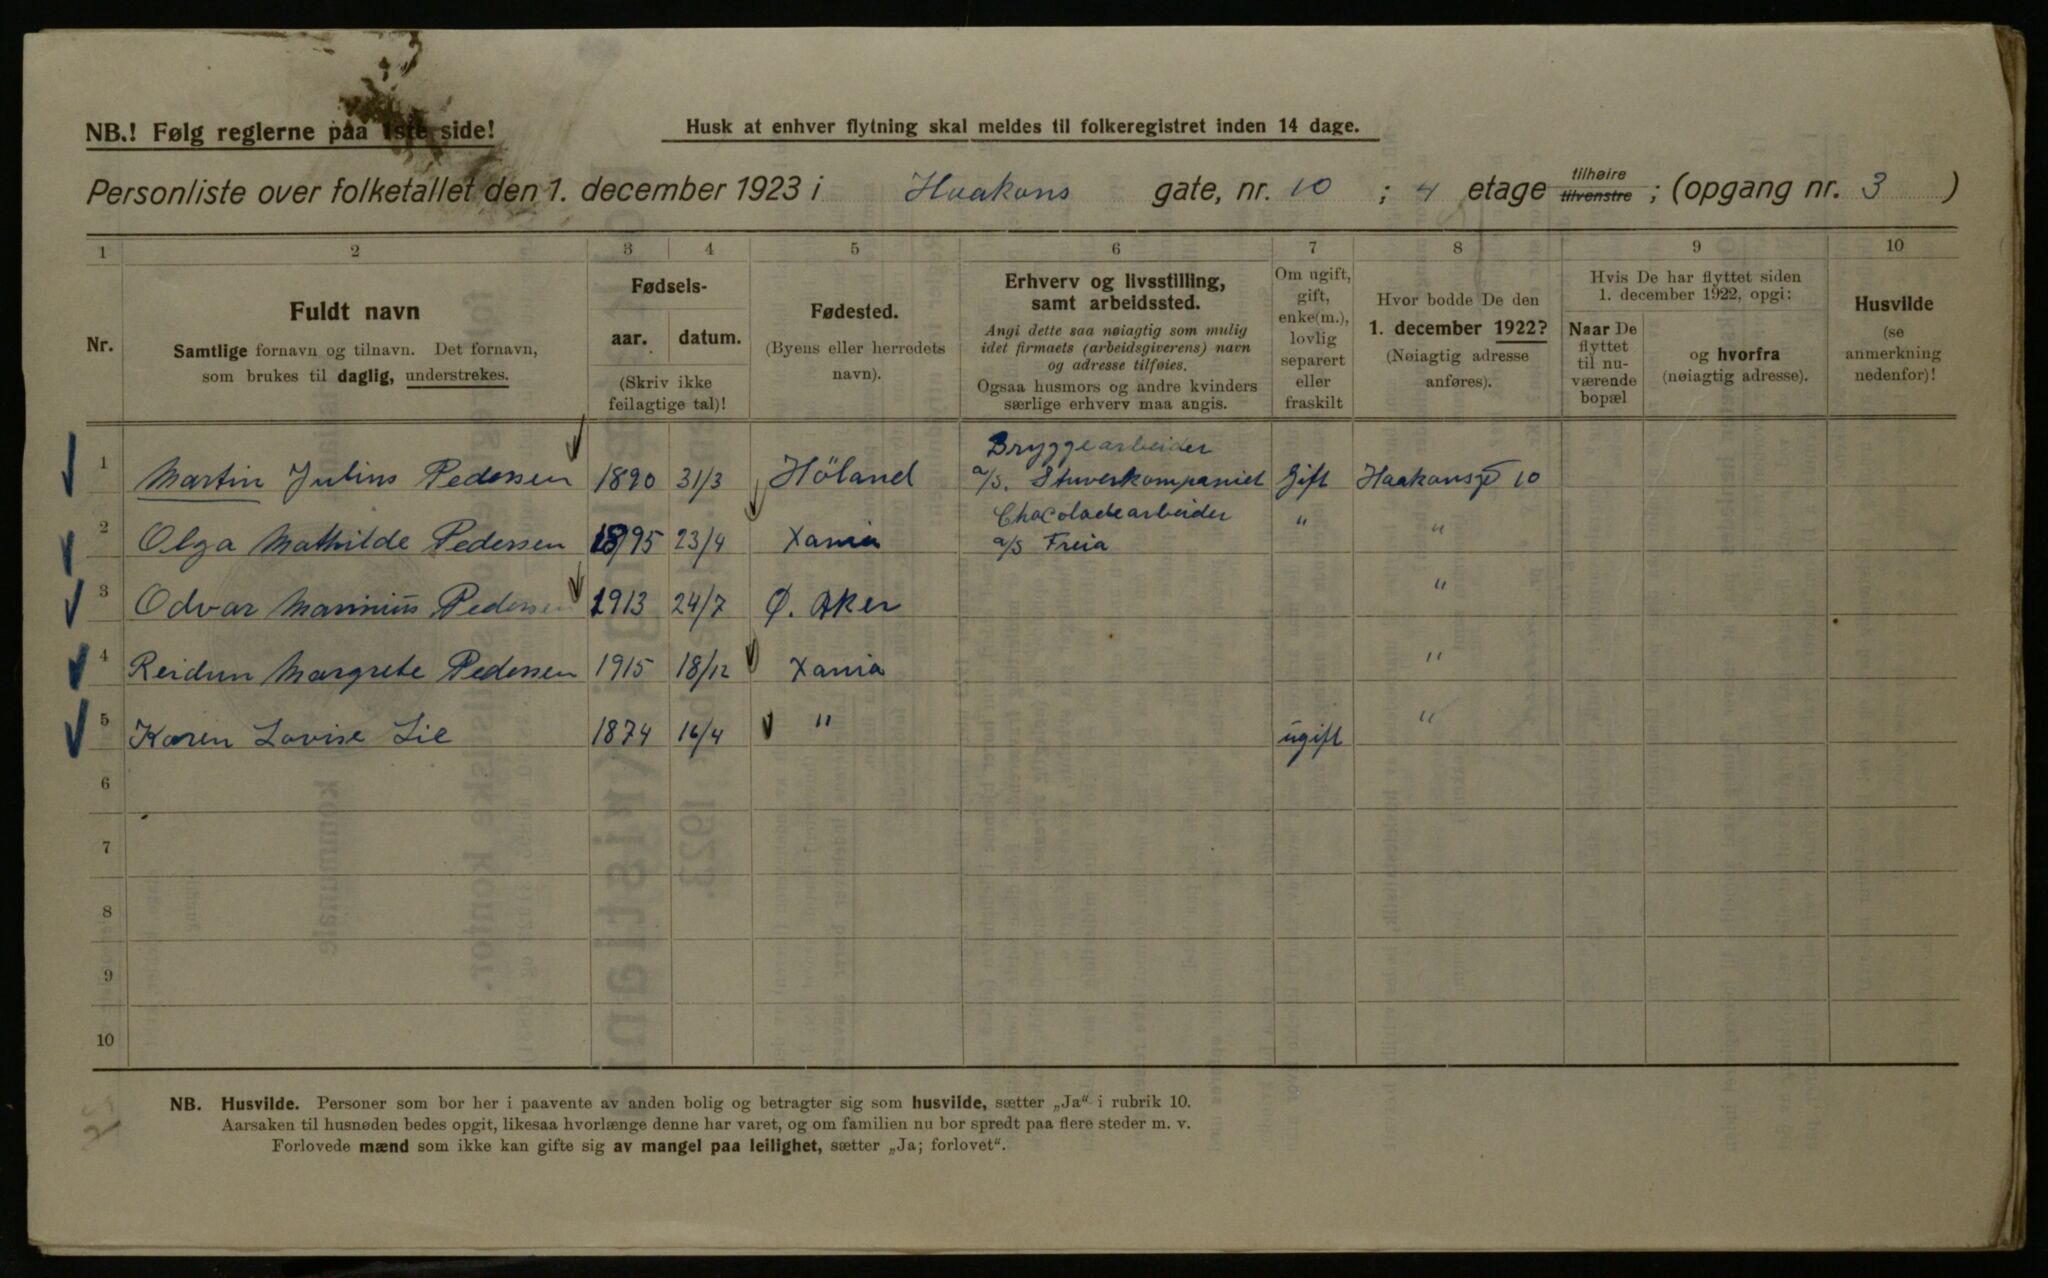 NB.! Følg reglerne paa 1ste side!
Husk at enhver flytning skal meldes til folkeregistret inden 14 dage.
Personliste over folketallet den 1. december 1923 i Haakons gate, nr. 10 ; 4 etage tilhøire tilvenstre ; (opgang nr. 3 )
1 2 3 4 5 6 7 8 9 10
Nr.
Fuldt navn
Samtlige fornavn og tilnavn. Det fornavn,
som brukes til daglig, understrekes.
Fødsels-
aar. datum.
(Skriv ikke
feilagtige tal)!
Fødested.
(Byens eller herredets
navn).
Erhverv og livsstilling,
samt arbeidssted.
Angi dette saa nøiagtig som mulig
idet firmaets (arbeidsgiverens) navn
og adresse tilføies.
Ogsaa husmors og andre kvinders
særlige erhverv maa angis.
Om ugift,
gift,
enke(m.),
lovlig
separert
eller
fraskilt
Hvor bodde De den
1. december 1922?
(Nøiagtig adresse
anføres).
Hvis De har flyttet siden
1. december 1922, opgi:
Naar De
flyttet
til nu-
værende
bopæl
og hvorfra
(nøiagtig adresse).
Husvilde
(se
anmerkning
nedenfor)!
Bryggearbeider
1 Martin Julius Pedersen 1890 31/3 Höland a/s. Stuverkompaniet Gift Haakonsgt 10
Chocoladearbeider
2 Olga Mathilde Pedersen 1895 23/4 Xania a/s Freia " "
3 Odvar Marinius Pedersen 1913 24/7 Ø. Aker "
4 Reidun Margrete Pedersen 1915 18/12 Xania "
5 Karen Lovise Lie 1874 16/4 " ugift "
6
7
8
9
10
NB. Husvilde. Personer som bor her i paavente av anden bolig og betragter sig som husvilde, sætter „Ja“ i rubrik 10.
Aarsaken til husnøden bedes opgit, likesaa hvorlænge denne har varet, og om familien nu bor spredt paa flere steder m. v.
Forlovede mænd som ikke kan gifte sig av mangel paa leilighet, sætter „Ja; forlovet“.